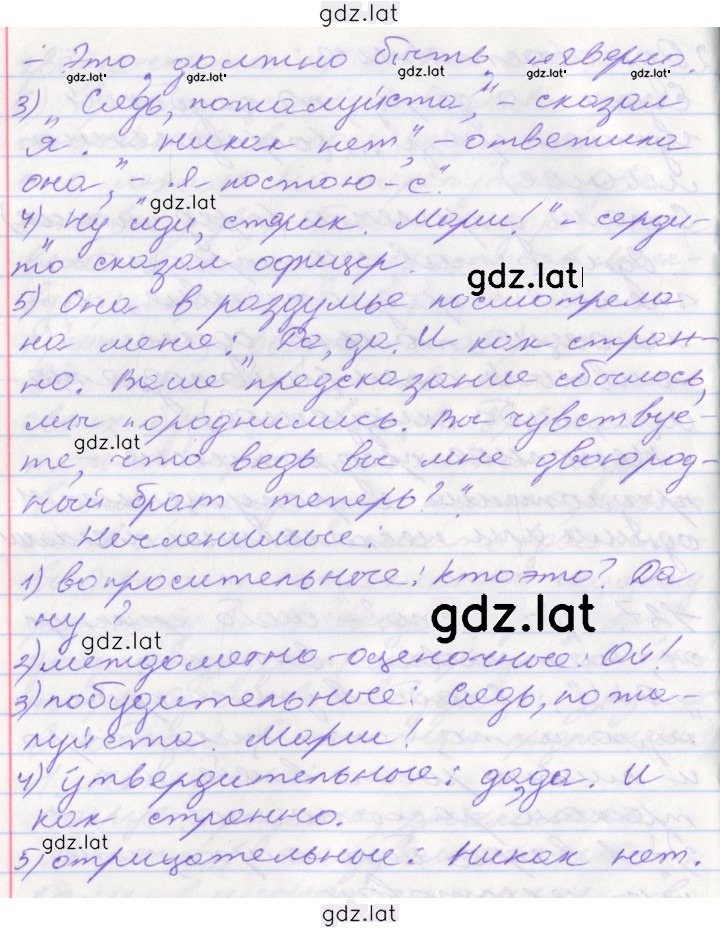 gdz.lat
- Это, должно быть, неверно.
gdz.lat gdz.lat gdz.lat gdz.lat
3) „Сядь, пожалуйста," - сказал
я. „Никак нет", - ответила
она, - „я постою-с".
gdz.lat
4) „Ну иди, старик. Марш!" - серди-
то сказал офицер.
gdz.lat
5) Она в раздумье посмотрела
на меня: „Да, да. И как стран-
но. Ваше предсказание сбылось,
мы породнились. Вы чувствуе-
gdz.lat
те, что ведь вы мне двоюрод-
ный брат теперь?".
Нечленимые:
1) вопросительные: Кто это? Да
ну?
gdz.lat
gdz.lat
2) междометно-оценочные: Ой!
3) побудительные: Сядь, пожа-
луйста. Марш!
4) утвердительные: да, да. И
как странно.
gdz.lat
5) отрицательные: Никак нет.
gdz.lat